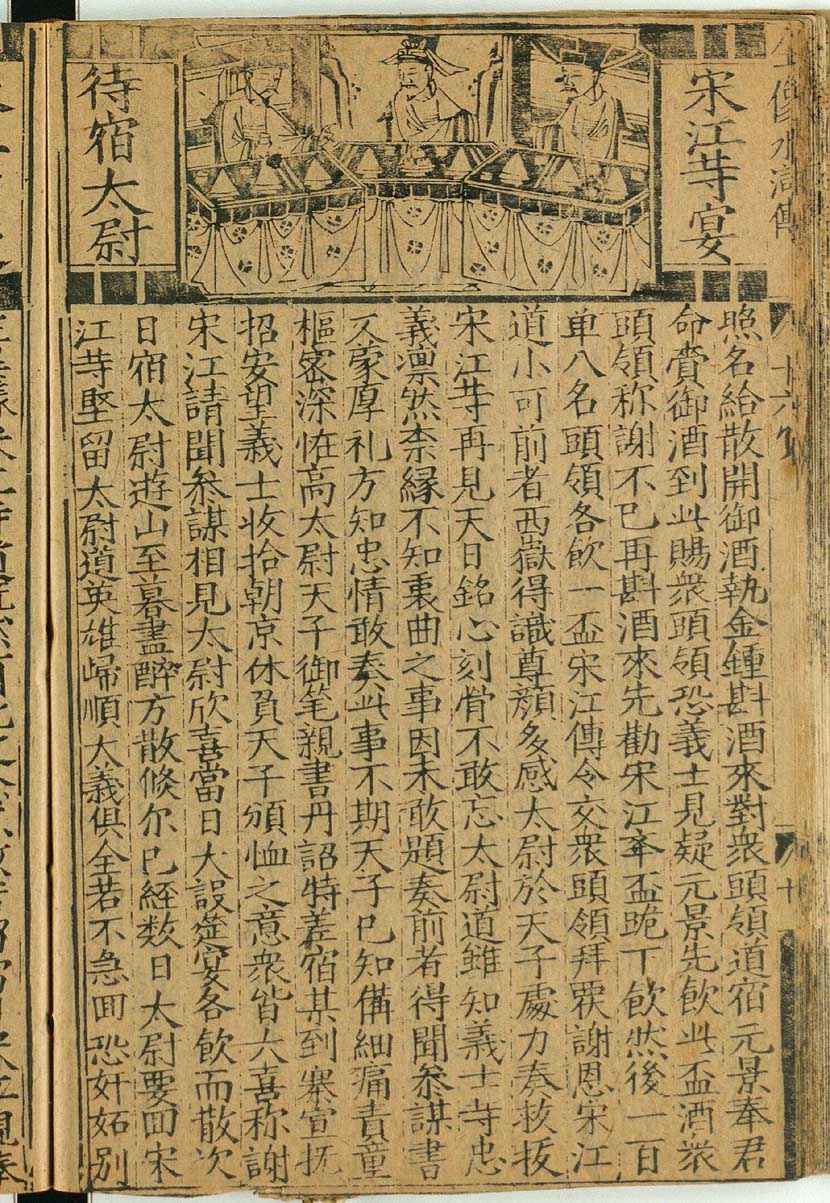 全像水滸傳
八十六
宋江䓁宴
待宿太尉
照名給散開御酒執金鍾斟酒來對衆頭領道宿元景奉君
命賫御酒到此賜衆頭領恐義士見疑元景先飲此盃酒衆
頭領称謝不已再斟酒來先勸宋江䒭盃跪丁飲然後一百
单八名頭領各飲一盃宋江傳令交衆頭領拜罢謝恩宋江
道小可前者西嶽得識尊顔多感太尉於天子處力奏救扳
宋江䓁再見天日銘心刻骨不敢忘太尉道雖知義士䓁忠
義凛然柰緣不知衷曲之事因未敢題奏前者得聞參謀書
又蒙厚礼方知忠情敢奏此事不期天子已知備細痛責童
樞密深恠高太尉天子御笔親書丹詔特差宿某到寨宣抚
招安望義士收拾朝京休負天子頒恤之意衆皆大喜称謝
宋江請聞參謀相見太尉欣喜當日大設筵宴各飲而散次
日宿太尉遊山至暮盡醉方散倐尔已經数日太尉要回宋
江䓁堅留太尉道英雄㱕順大義俱全若不急回恐奸妬別